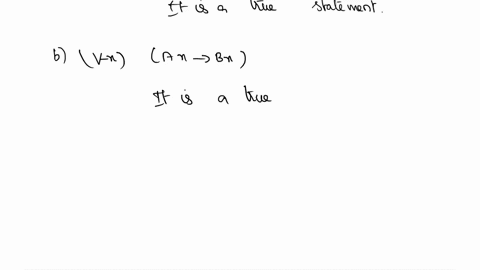 It is a true statement.
b) (∀x) (Ax → Bx)
It is a true